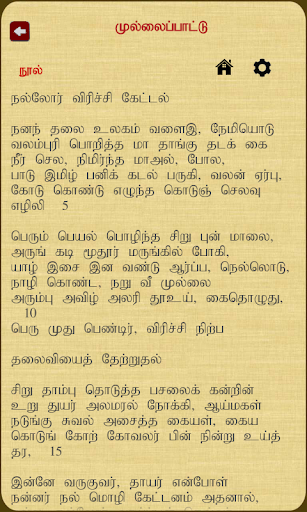 முல்லைப்பாட்டு
நூல்
நல்லோர் விரிச்சி கேட்டல்
நனந் தலை உலகம் வளைஇ, நேமியொடு
வலம்புரி பொறித்த மா தாங்கு தடக் கை
நீர் செல, நிமிர்ந்த மாஅல், போல,
பாடு இமிழ் பனிக் கடல் பருகி, வலன் ஏர்பு,
கோடு கொண்டு எழுந்த கொடுஞ் செலவு
எழிலி 5
பெரும் பெயல் பொழிந்த சிறு புன் மாலை,
அருங் கடி மூதூர் மருங்கில் போகி,
யாழ் இசை இன வண்டு ஆர்ப்ப, நெல்லொடு,
நாழி கொண்ட, நறு வீ முல்லை
அரும்பு அவிழ் அலரி தூஉய், கைதொழுது,
10
பெரு முது பெண்டிர், விரிச்சி நிற்ப
தலைவியைத் தேற்றுதல்
சிறு தாம்பு தொடுத்த பசலைக் கன்றின்
உறு துயர் அலமரல் நோக்கி, ஆய்மகள்
நடுங்கு சுவல் அசைத்த கையள், கைய
கொடுங் கோற் கோவலர் பின் நின்று உய்த்
தர, 15
இன்னே வருகுவர், தாயர் என்போள்
நன்னர் நல் மொழி கேட்டனம் அதனால்,